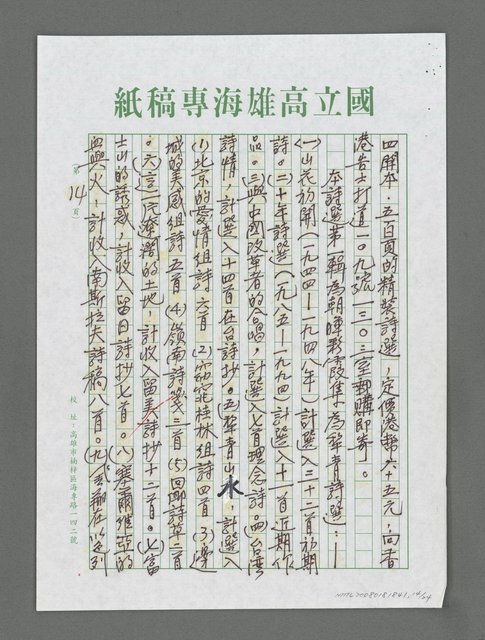 國立高雄海專稿紙
四開本．五百頁的精裝詩選，定價港幣六十五元，向香
港告士打道一○九號一三○三室郵購即寄。
本詩選第一輯為朝暉彩霞集，為犂青詩選：—
(一)山花初開（一九四四—一九四八年）計選入二十二首初期
詩。(二)十年詩選（一九八五—一九九四）計選入十一首近期作
品。(三)與中國改革者的合唱，計選入七首理念詩。(四)台灣
詩情，計選入十四首在台詩抄。(五)犂青山水，計選入
(1)北京的愛情組詩六首(2)窈窕桂林組詩四首(3)邊
城的美感組詩五首(4)嶺南詩箋二首(5)回鄉詩草二首
。(六)這一片遼濶的土地，計收入留美詩抄十二首。(七)富
士山的誘惑，計收入留日詩抄七首。(八)塞爾維亞的
血與火，計收入南斯拉夫詩稿八首。(九)耶在以色列
第14頁
校址：高雄市楠梓區海專路一四二號
NMTL20080181841, 14/24